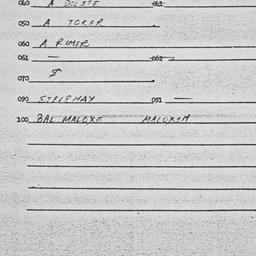 040 A DOLITE 041
050 A TOKER
060 A RIMER
061 — 062 —
070
090 STRIPMAY 091 —
100 BAL MALOXE MALOXIM